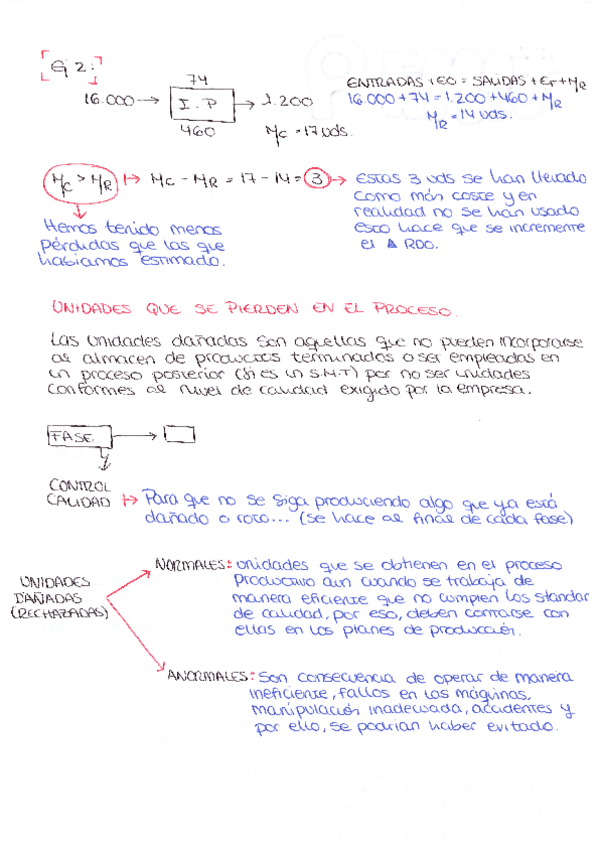 Ej 2:
74
16.000 → I.P → 1.200
460
Mc = 17 uds.
ENTRADAS + EO = SALIDAS + EF + MR
16.000 + 74 = 1.200 + 460 + MR
MR = 14 uds.
Mc > MR → Mc - MR = 17 - 14 = 3 →
Estas 3 uds se han llevado
como más coste y en
realidad no se han usado
esto hace que se incremente
el Δ RDO.
Hemos tenido menos
pérdidas que las que
habíamos estimado.
UNIDADES QUE SE PIERDEN EN EL PROCESO.
Las unidades dañadas son aquellas que no pueden incorporarse
al almacen de productos terminados o ser empleadas en
un proceso posterior (si es un S.M.T) por no ser unidades
conformes al nivel de calidad exigido por la empresa.
FASE
CONTROL
CALIDAD → Para que no se siga produciendo algo que ya está
dañado o roto... (se hace al final de cada fase)
UNIDADES
DAÑADAS
(RECHAZADAS)
NORMALES: unidades que se obtienen en el proceso
productivo aun cuando se trabaja de
manera eficiente que no cumplen los standar
de calidad, por eso, deben contarse con
ellas en los planes de producción.
ANORMALES: Son consecuencia de operar de manera
ineficiente, fallos en las máquinas,
manipulación inadecuada, accidentes y
por ello, se podrían haber evitado.